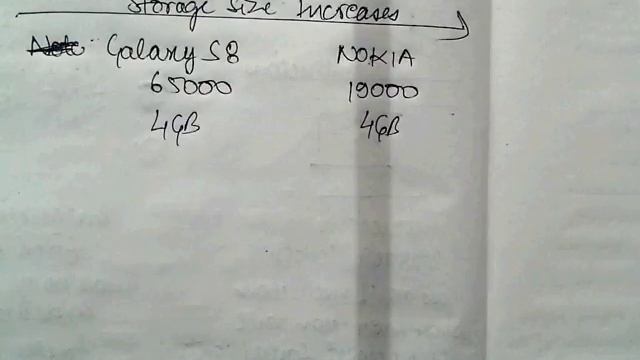 Storage Size Increases
Note: Galaxy S8 NOKIA
65000 19000
4GB 4GB